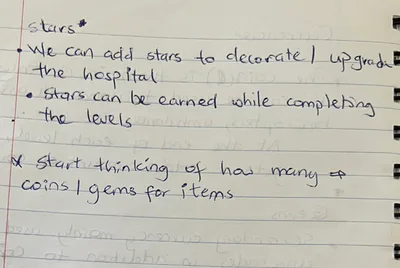 stars*
• We can add stars to decorate / upgrade
the hospital
• stars can be earned while completing
the levels
* start thinking of how many →
coins / gems for items